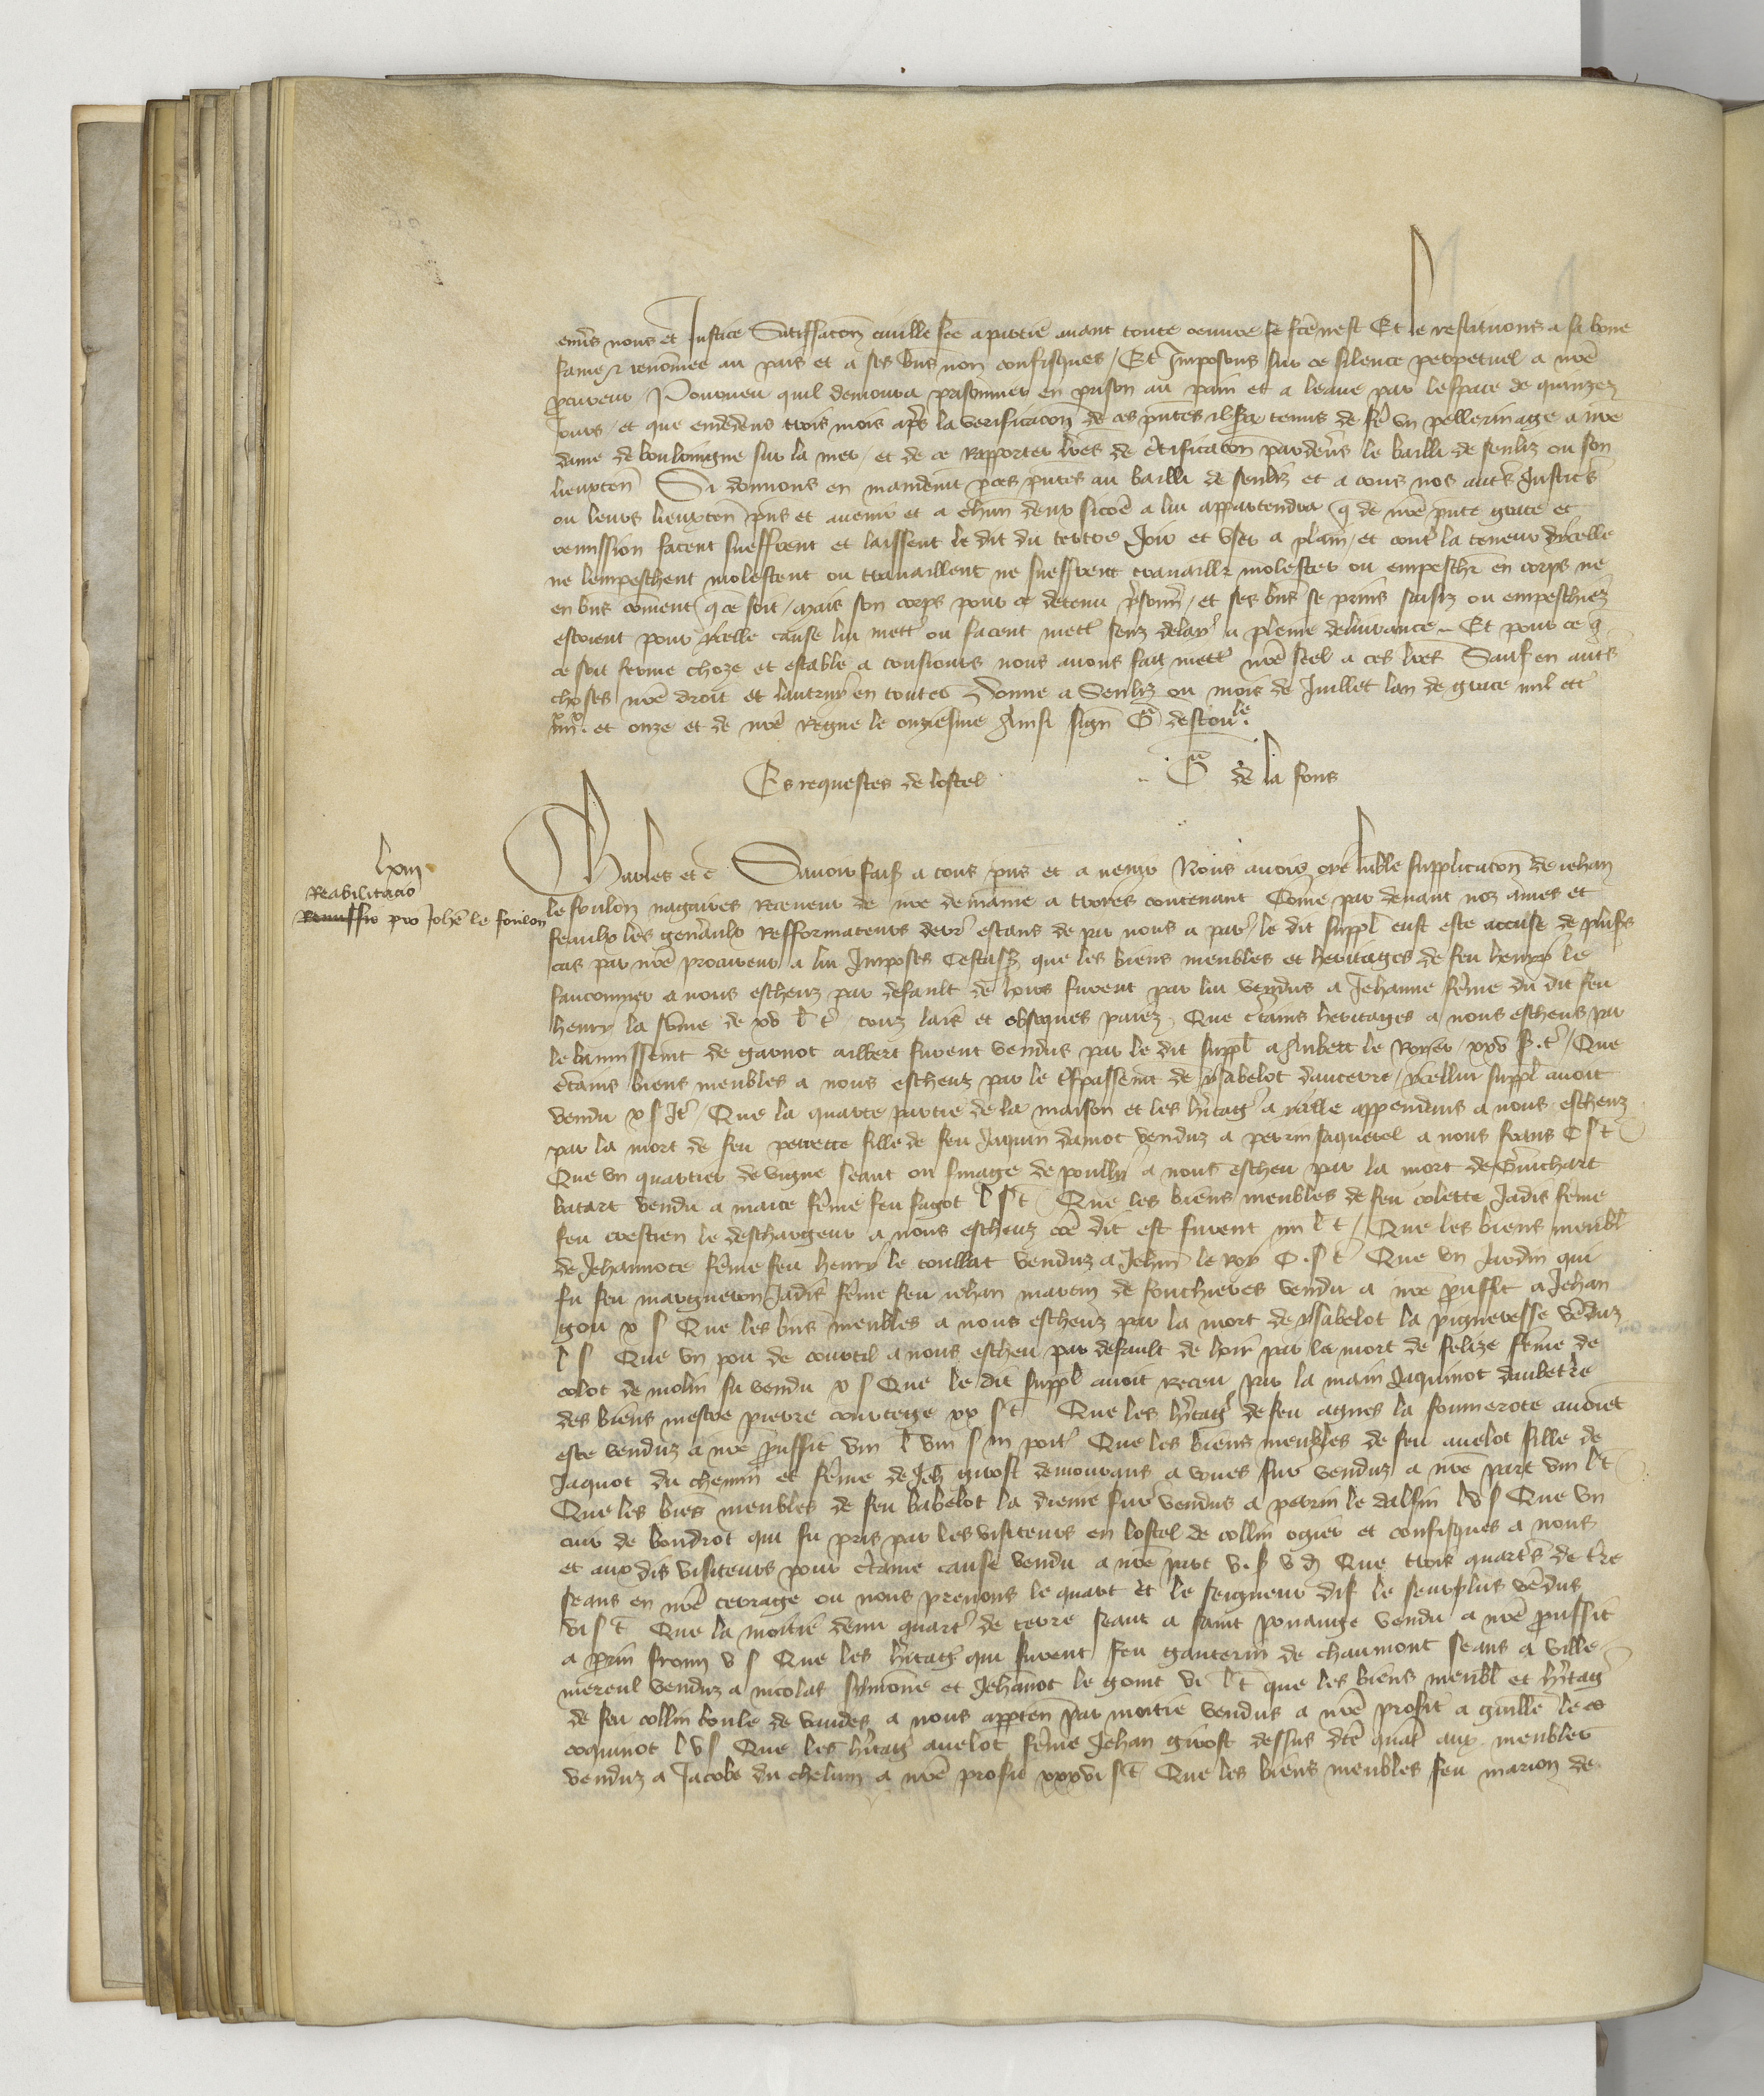 envers nous et Justice Satiffacon civille fce a partie avant toute oeuvre se fce nest Et le restituons a sa bone
fame et renomee au pais et a ses bns non confisques / Et Imposons sur ce silence perpetuel a nre
procureur Pourveu quil demourra prisonnier en prison au pain et a leaue par lespace de quinze
Jours / et que endedens trois mois apres la verificacon de ces pntes il sera tenus de fe un pellerinage a nre
dame de bouloingne sur la mer / et de ce Rapporter lres de certificacon par devers le bailli de senliz ou son
lieuxten Si donnons en mandemt par ces pntes au bailli de senliz et a tous nos autres Justiciers
ou leurs lieuxten pns et avenir et a chun deulx sicoe a lui appartendra que de nre pnte grace et
remission facent sueffrent et laissent le dit du tertre Joir et user a plain / et contre la teneur dicelle
ne lempeschent molestent ou travaillent ne sueffrent travaillier molester ou empescher en corps ne
en bns coment que ce soit / mais son corps pour ce detenu prisonnier / et ses bns se prins saisiz ou empeschiez
estoient pour ycelle cause lui mettre ou facent mettre senz delay a pleine delivrance - Et pour ce que
ce soit ferme choze et estable a tousiours nous avons fait mettre nre seel a ces lres Sauf en autres
choses nre droit et lautruy en toutes Donne a Senliz ou mois de Juillet lan de grace mil ccc
iiiixx. et onze et de nre Regne le onziesme Ainsi sign G descou le.
Es requestes de lostel G de la fons
lxiii
Reabilitacio
Remissio pro Johe le foulon
Charles etc Savoir faiz a tous pns et a nenir Nous avons oye lumble supplicacon de iehan
le foulon nagaires receveur de nre demaine a troies contenant Come par devant noz ames et
feaulx les generaulx Refformateurs derr estans de par nous a par le dit suppl eust este accuse de plusrs
cas par nre procureur a lui Imposes Cestass que les biens meubles et heritages de feu henry le
fauconnier a nous escheuz par default de hoirs furent par lui vendus a Jehanne feme du dit feu
henry la some de xv l t touz lais et obseques paiez Que certains heritages a nous escheus par
le bannissemt de garnot ailbert furent vendus par le dit suppl a Jnbert le Royer xxv s.t / Que
certains biens meubles a nous escheuz par le trespassemt de ysabelot daucerre / ycellui suppl avoit
vendu x s It / Que la quarte partie de la maison et les heritag a ycelle appendans a nous escheuz
par la mort de feu perrette fille de feu Jaquin damot venduz a perrin saquerel a nous frans C s t
Que un quartier de vigne seant ou finage de poully a nous escheu par la mort de Guichart
batart vendu a marie feme feu fagot l s t Que les biens meubles de feu colette Jadis feme
feu crestien le deschargeur a nous escheuz coe dit est furent iiii l t / Que les biens meubl
de Jehannote feme feu henry le coullat venduz a Jehan le roy C.s t Que un Jardin qui
fu feu margueron Jadis feme feu iehan marem de fouchieres vendu a nre prouffit a Jehan
gou x s Que les bns meubles a nous escheuz par la mort de ysabelot la pigneresse venduz
l s Que un pou de courtil a nous escheu par default de hoir par la mort de felize feme de
colot de molin fu vendu x s Que le dit suppl avoit receu par la main Jaquinot daubetre
des biens mestre pierre courtege xx s t Que les heritag de feu agnes la foumerote avoiet
este venduz a nre prouffit viii l viii s iii poit Que les biens meubles de feu avelot fille de
Jaquot du chemin et feme de Jeh girost demourans a voues fur venduz a nre part viii l t
Que les bies meubles de feu babelot la dieme fur vendus a perrin le dalfin lv s Que un
cuir de boudrot qui fu pris par les visiteurs en lostel de collin ogier et confisques a nous
et aux dis visiteurs pour certaine cause vendu a nre part v.s v d Que trois quartrs de tre
seans en nre terrage ou nous prenons le quart et le seigneur dif le seurplus vedus
vi s t Que la moitie demi quart de terre seant a saint pouange vendu a nre prouffit
a prin fromy v s Que les heritag qui furent feu gauterin de chaumont seans a ville
mereul venduz a nicolas symone et Jehanot le gomt vi l t que les biens meubl et heritag
de feu collin boule de vaudes a nous apparten par moitie vendus a nre profit a guille le co
coquinot lv s Que les heritag avelot feme Jehan girost dessus dte qual aux meubles
venduz a Jacobe du chelum a nre profit xxxvi s t Que les biens meubles feu marion de